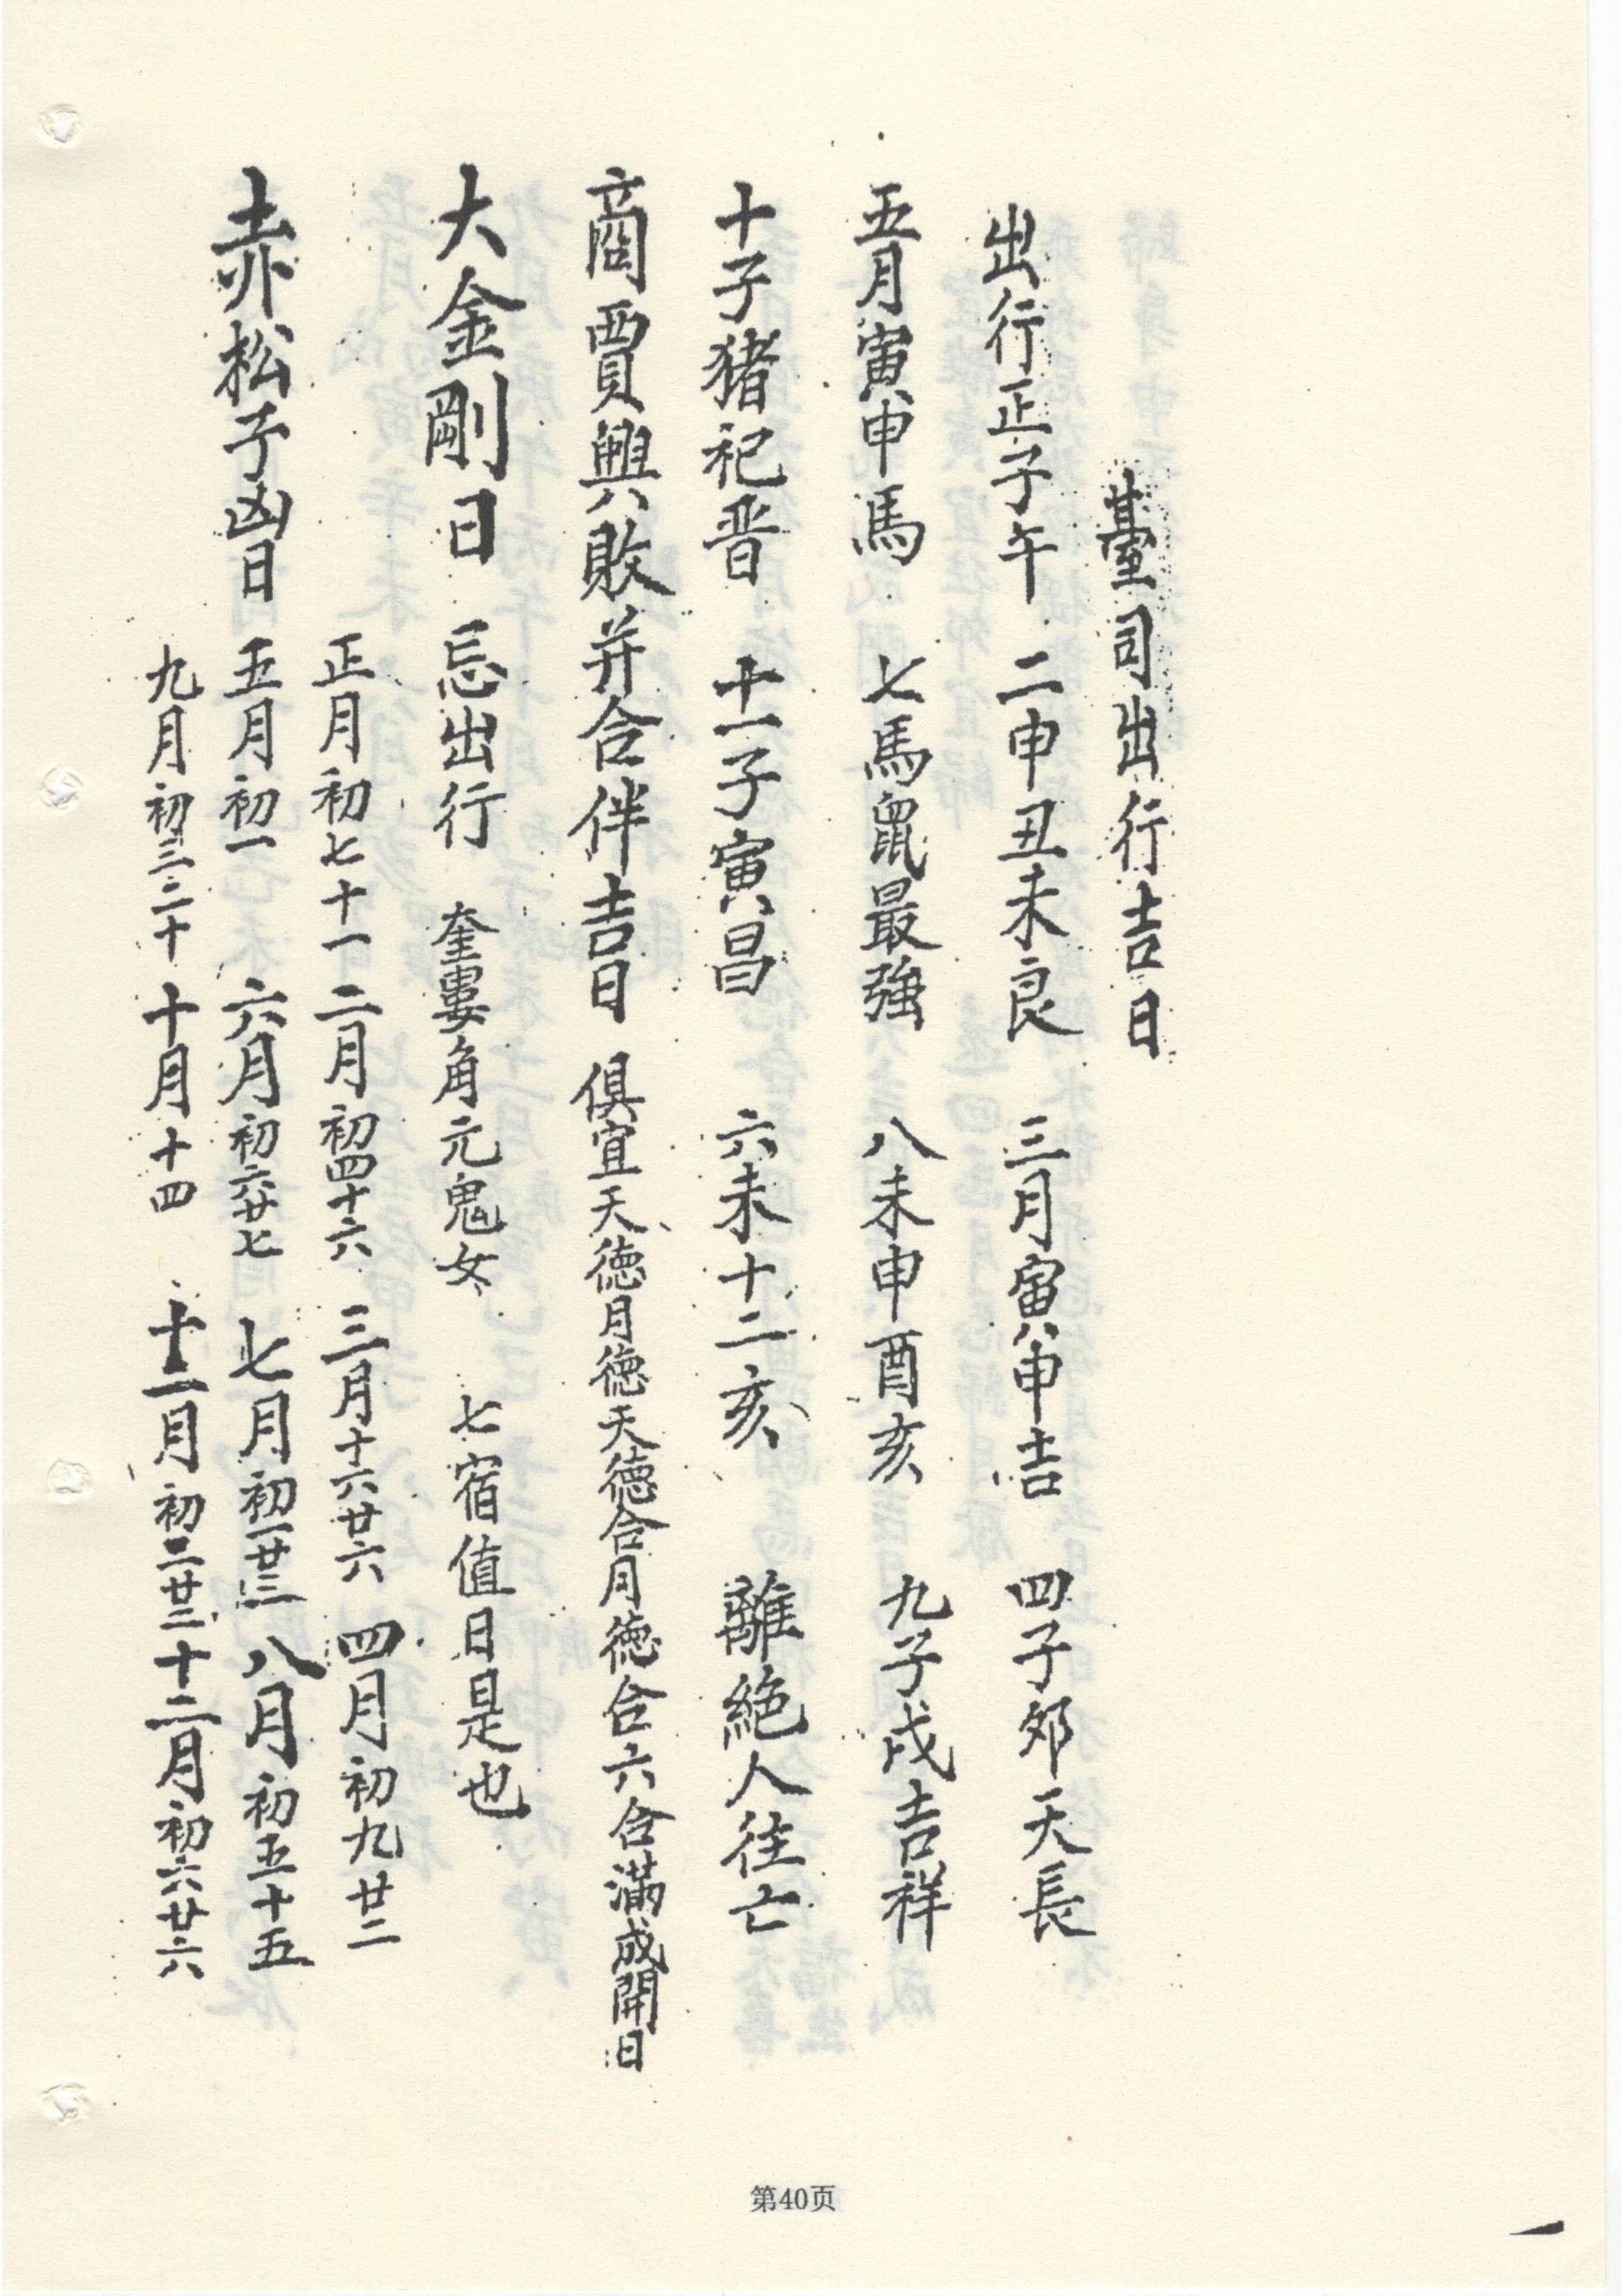 臺司出行吉日
出行正子午 二申丑未良 三月寅申吉 四子夘天長
五月寅申馬 七馬鼠最強 八未申酉亥 九子戌吉祥
十子猪祀晋 十一子寅昌 六未十二亥 離絶人往亡
商賈興敗并合伴吉日 俱宜天徳月徳天徳合月徳合六合滿成開日
大金剛日 忌出行 奎婁角元鬼女 七宿值日是也
正月初七十一 二月初四十六 三月十六廿六 四月初九廿二
赤松子凶日 五月初一 六月初六廿七 七月初一廿三 八月初五十五
九月初三二十 十月十四 十一月初二廿二 十二月初六廿六
第40页